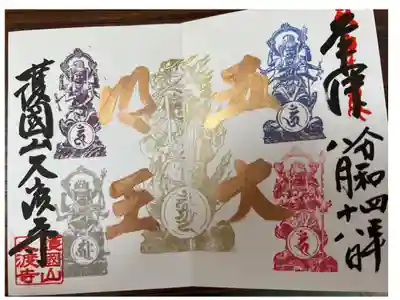 奉拝
令和四年
八月十八日
五大
明王
護國山久渡寺
護國山
久渡寺